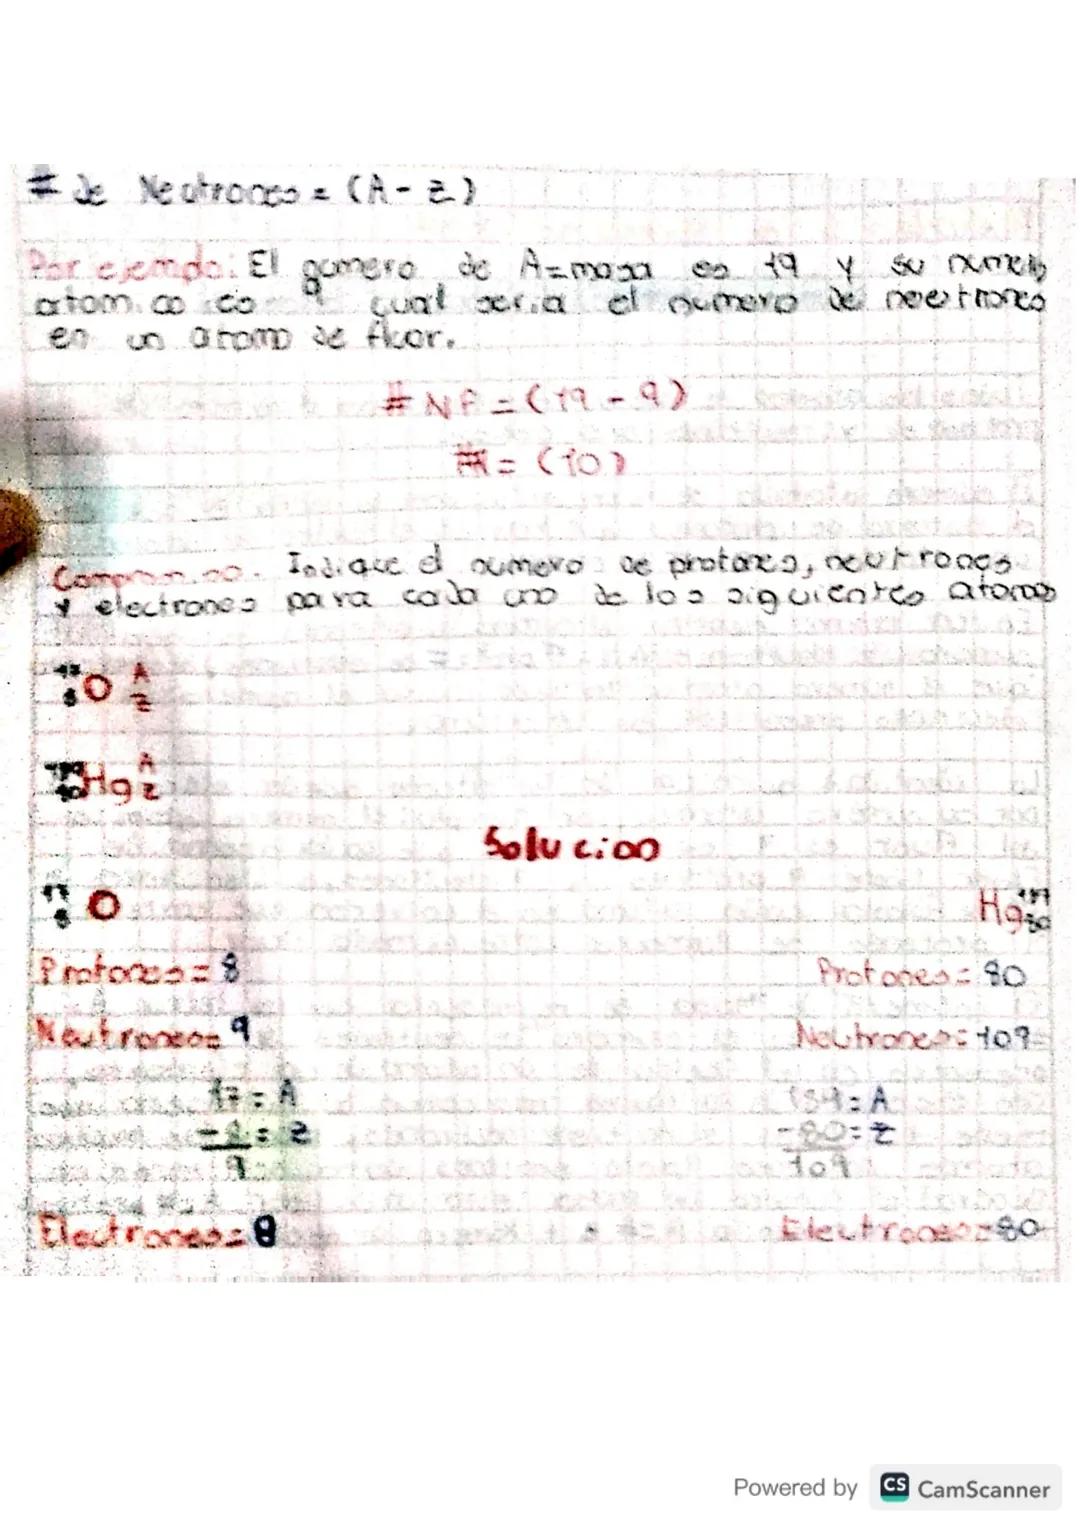 # de Neutrones = (A - Z)
Por ejemplo: El numero de A=masa es 19 y su numero
atomico es 9 cual seria el numero de neutrones
en un atomo de fluor.
# NF = (19 - 9)
= (10)
Compromiso. Indique el numero de protones, neutrones
y electrones para cada uno de los siguientes atomos
17 8 O A Z
Hg A Z
Solucion
17 8 O
Hg 80
Protones = 8
Protones = 80
Neutrones = 9
Neutrones = 109
17 = A
= A
- 8 = Z
- 80 = Z
9
109
Electrones = 8
Electrones = 80
Powered by CS CamScanner